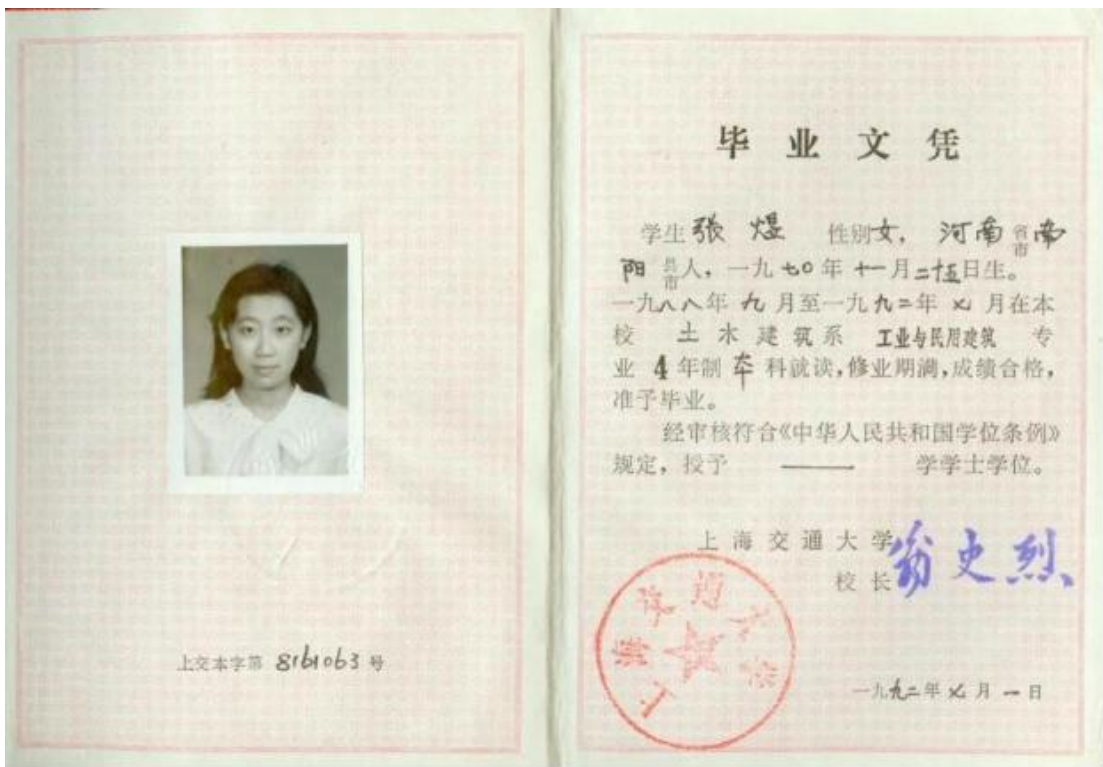 上交本字第 8161063 号
毕业文凭
学生张煜 性别女, 河南省市南
阳县市人,一九七0年十一月二十五日生。
一九八八年九月至一九九二年七月在本
校 土木建筑系 工业与民用建筑 专
业 4 年制本科就读,修业期满,成绩合格,
准予毕业。
经审核符合《中华人民共和国学位条例》
规定,授予 —— 学学士学位。
上海交通大学
校长 翁史烈
上海交通大学
一九九二年七月一日